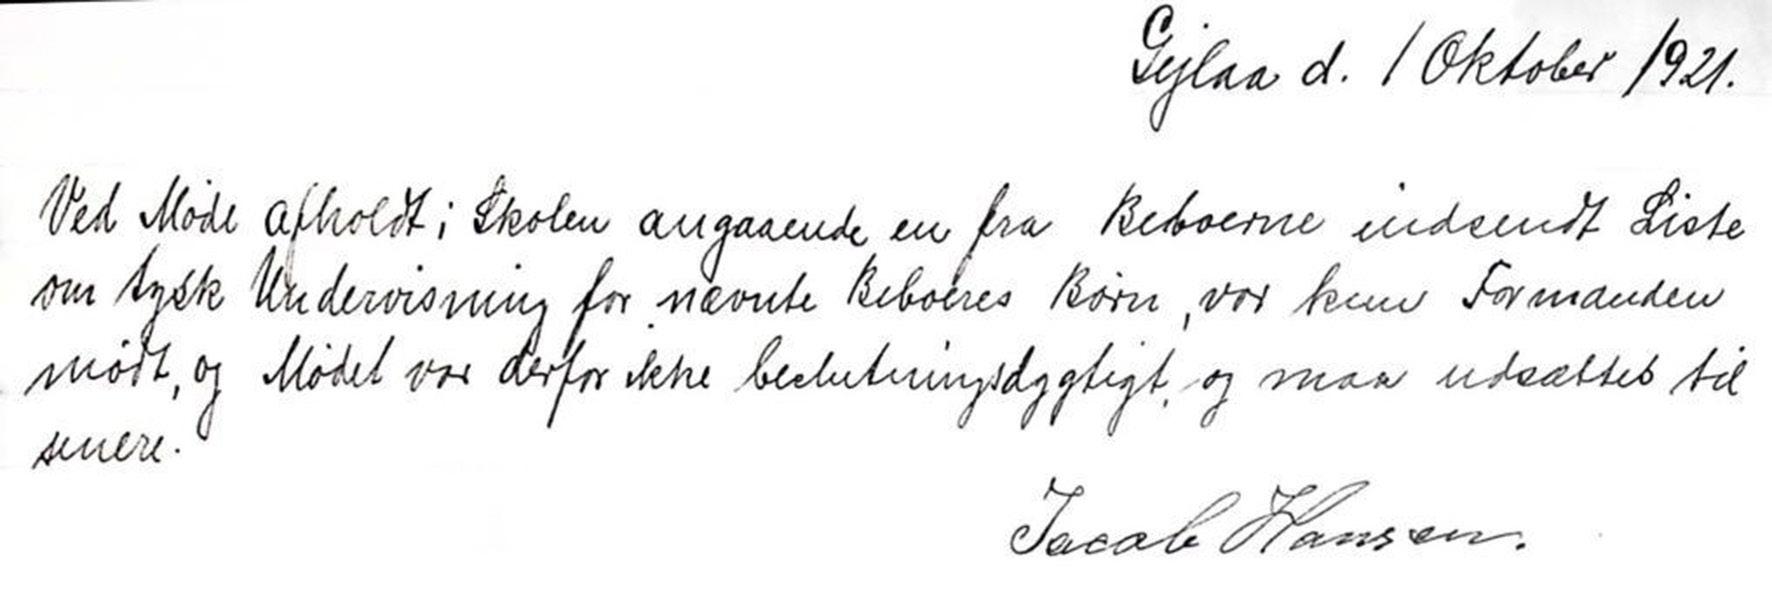 Gejlaa d. 1 Oktober 1921.
Ved Møde afholdt i Skolen angaaende en fra Beboerne indsendt Liste
om tysk Undervisning for nævnte Beboeres Børn, var kun Formanden
mødt, og Mødet var derfor ikke beslutningsdygtigt, og maa udsættes til
senere.
Jacob Hansen.